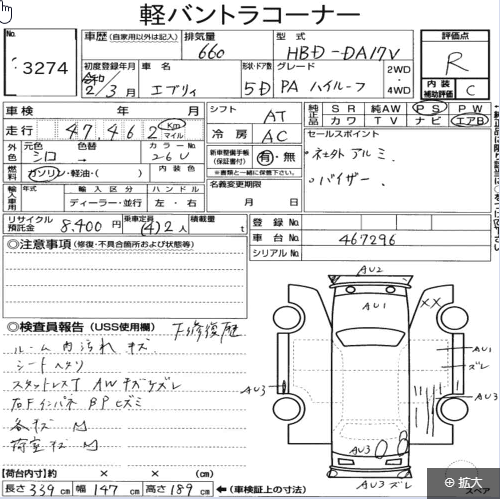 軽バントラコーナー
No.
3274
車歴 (自家用以外は記入)
排気量
660
型式
HBD-DA17V
評価点
R
初度登録年月
令和
2/3月
車名
エブリィ
形状・ドア数
5D
グレード
PA ハイルーフ
2WD
・
4WD
内装
補助評価
C
車検 年 月
シフト
AT
純正品
SR 純AW PS PW
カワ TV ナビ エアB
走行
47,462
Km
マイル
冷房
AC
セールスポイント
・社外アルミ.
・バイザー.
外色
元色
シロ
色替
カラーNo.
26U
新車整備手帳
(保証書付)
有・無
※書類と一緒に保管下さい。
燃料
ガソリン・軽油・( )
内装色
名義変更期限
月 日
輸入車用
年式
輸入区分
ディーラー・並行
ハンドル
左・右
リサイクル
預託金
8,400円
乗車定員
(4)2人
積載量
t
登録No.
車台No.
467296
シリアルNo.
◎注意事項 (修復・不具合箇所および状態等)
◎検査員報告 (USS使用欄)
下修復歴
ルーム内汚れ キズ
シートヘタリ
スタットレスT AWキズケズレ
右Fインパネ BPヒズミ
各キズ M
荷室キズ M
AU2
AU1
XX
AU1
ズレ
AU3
AU3
AU3
AU3ズレ
【荷台内寸】約 × × (cm)
長さ 339cm 幅 147cm 高さ 189cm ←(車検証上の寸法)
スペア
拡大